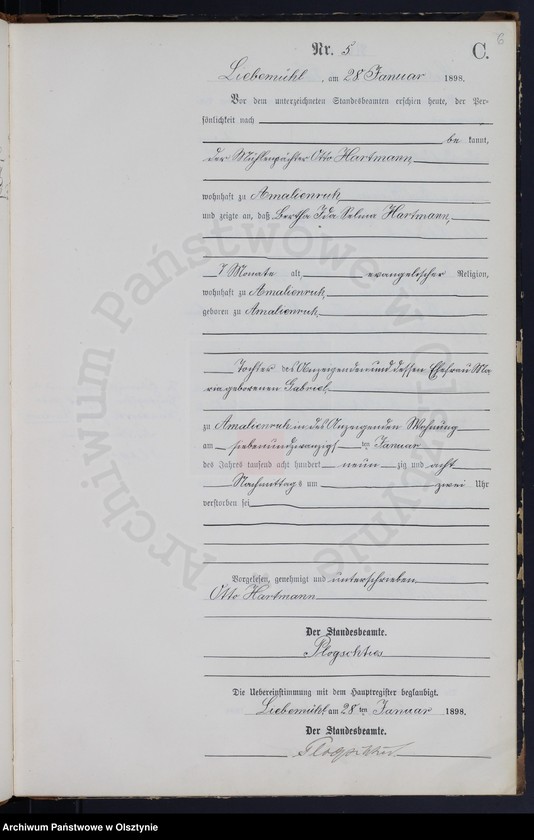 6
Nr. 5
C.
Liebemühl, am 28 Januar 1898.
Vor dem unterzeichneten Standesbeamten erschien heute, der Per-
sönlichkeit nach
be kannt,
der Mühlenpächter Otto Hartmann,
wohnhaft zu Amalienruh
und zeigte an, daß Bertha Ida Selma Hartmann,
7 Monate alt, evangelischer Religion,
wohnhaft zu Amalienruh,
geboren zu Amalienruh,
Tochter des Anzeigenden und dessen Ehefrau Ma-
rie geborenen Gabriel,
zu Amalienruh in des Anzeigenden Wohnung
am siebenundzwanzigsten Januar
des Jahres tausend acht hundert neun zig und acht
Nachmittags um zwei Uhr
verstorben sei
Vorgelesen, genehmigt und unterschrieben
Otto Hartmann
Der Standesbeamte.
Plogschties
Die Uebereinstimmung mit dem Hauptregister beglaubigt.
Liebemühl am 28ten Januar 1898.
Der Standesbeamte.
Plogschties
Archiwum Państwowe w Olsztynie
Archiwum Państwowe w Olsztynie